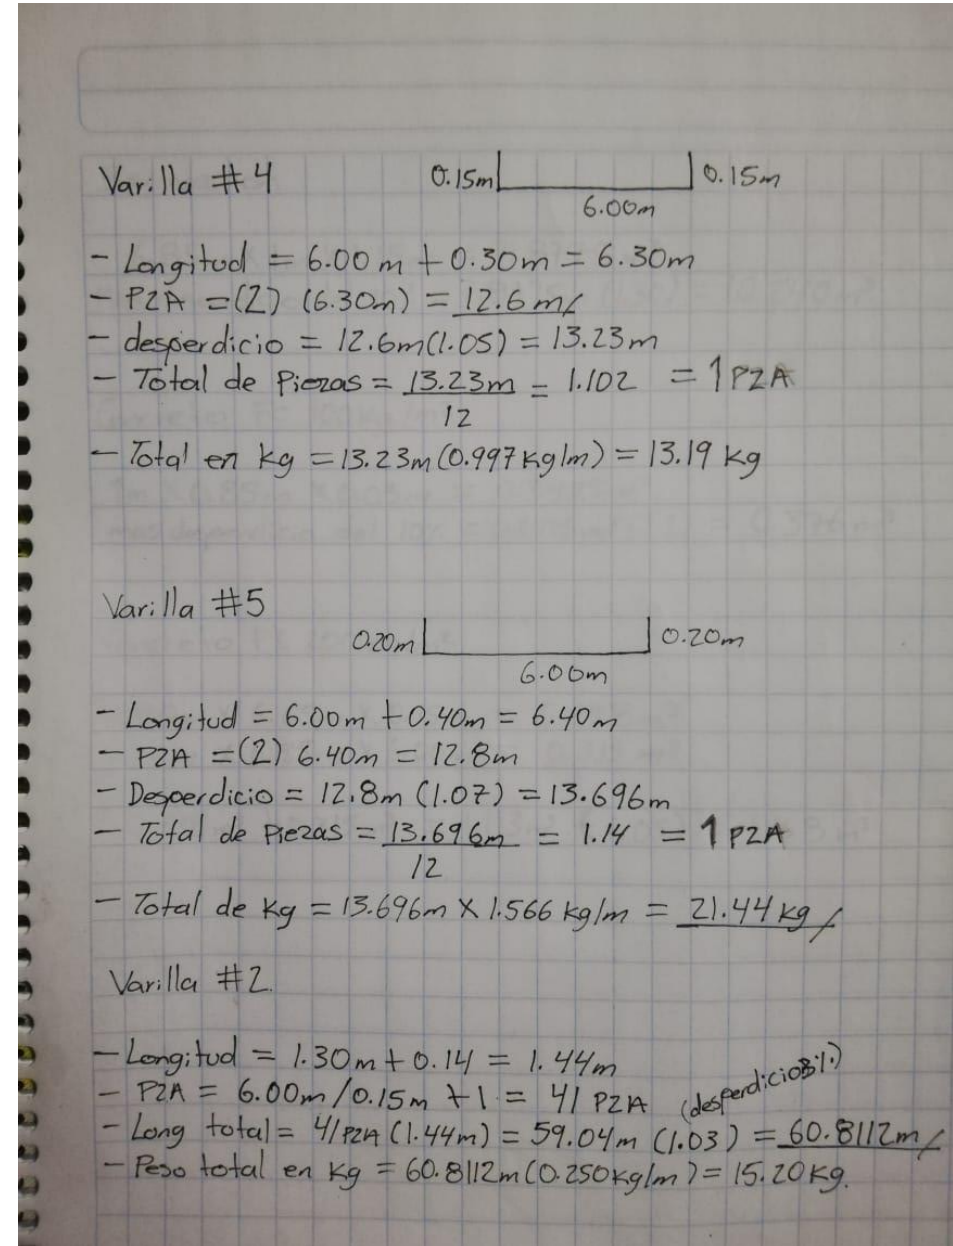 Varilla #4
0.15m 0.15m
6.00m
- Longitud = 6.00 m + 0.30m = 6.30m
- PZA = (2) (6.30m) = 12.6 m/
- desperdicio = 12.6m(1.05) = 13.23m
- Total de Piezas = 13.23m = 1.102 = 1 PZA
12
- Total en kg = 13.23m (0.997 kg/m) = 13.19 kg
Varilla #5
0.20m 0.20m
6.00m
- Longitud = 6.00m + 0.40m = 6.40m
- PZA = (2) 6.40m = 12.8m
- Desperdicio = 12.8m (1.07) = 13.696m
- Total de Piezas = 13.696m = 1.14 = 1 PZA
12
- Total de kg = 13.696m X 1.566 kg/m = 21.44 kg/
Varilla #2.
- Longitud = 1.30m + 0.14 = 1.44m
- PZA = 6.00m/0.15m + 1 = 41 PZA (desperdicio 3%)
- Long total = 41 PZA (1.44m) = 59.04m (1.03) = 60.8112m/
- Peso total en kg = 60.8112m (0.250kg/m) = 15.20 kg.